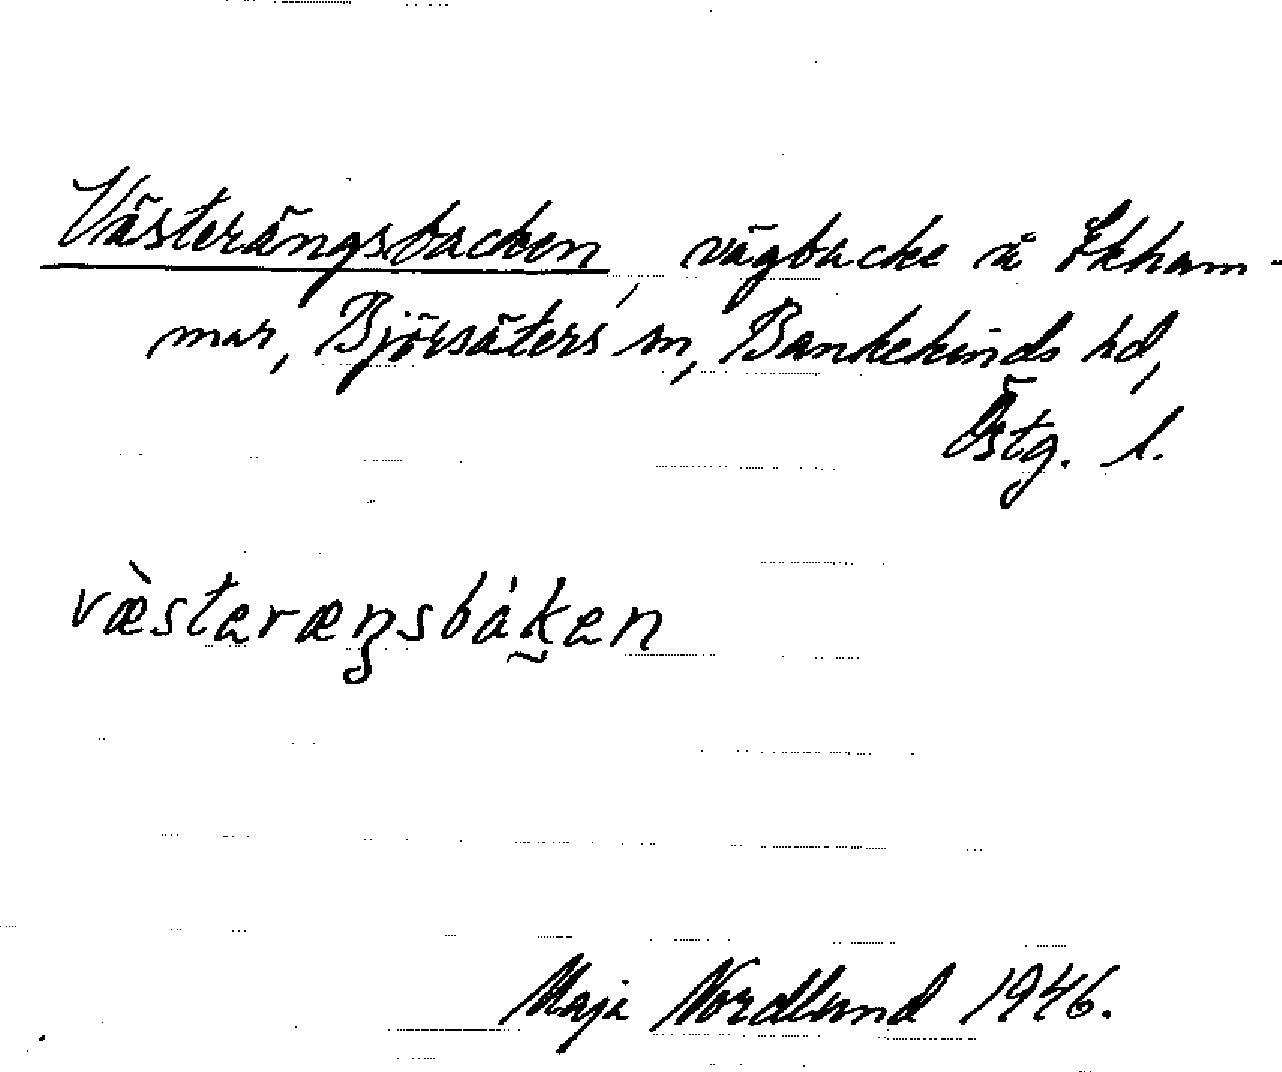 Västerängsbacken, vägbacke å Ekham-
mar, Björsäters sn, Bankekinds hd,
Östg. l.
væ̀stəræŋsbák̰ən
Maja Nordlund 1946.